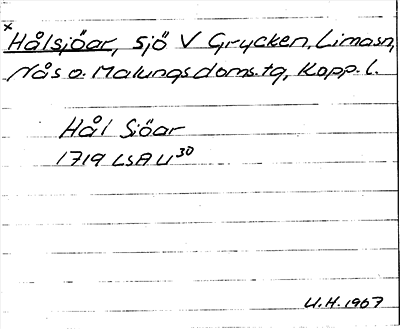 x Hålsjöar, sjö V Grycken, Limasn,
Nås o. Malungs doms.tg, Kopp. l.
Hål Siöar
1719 LSA U 30
U.H. 1967